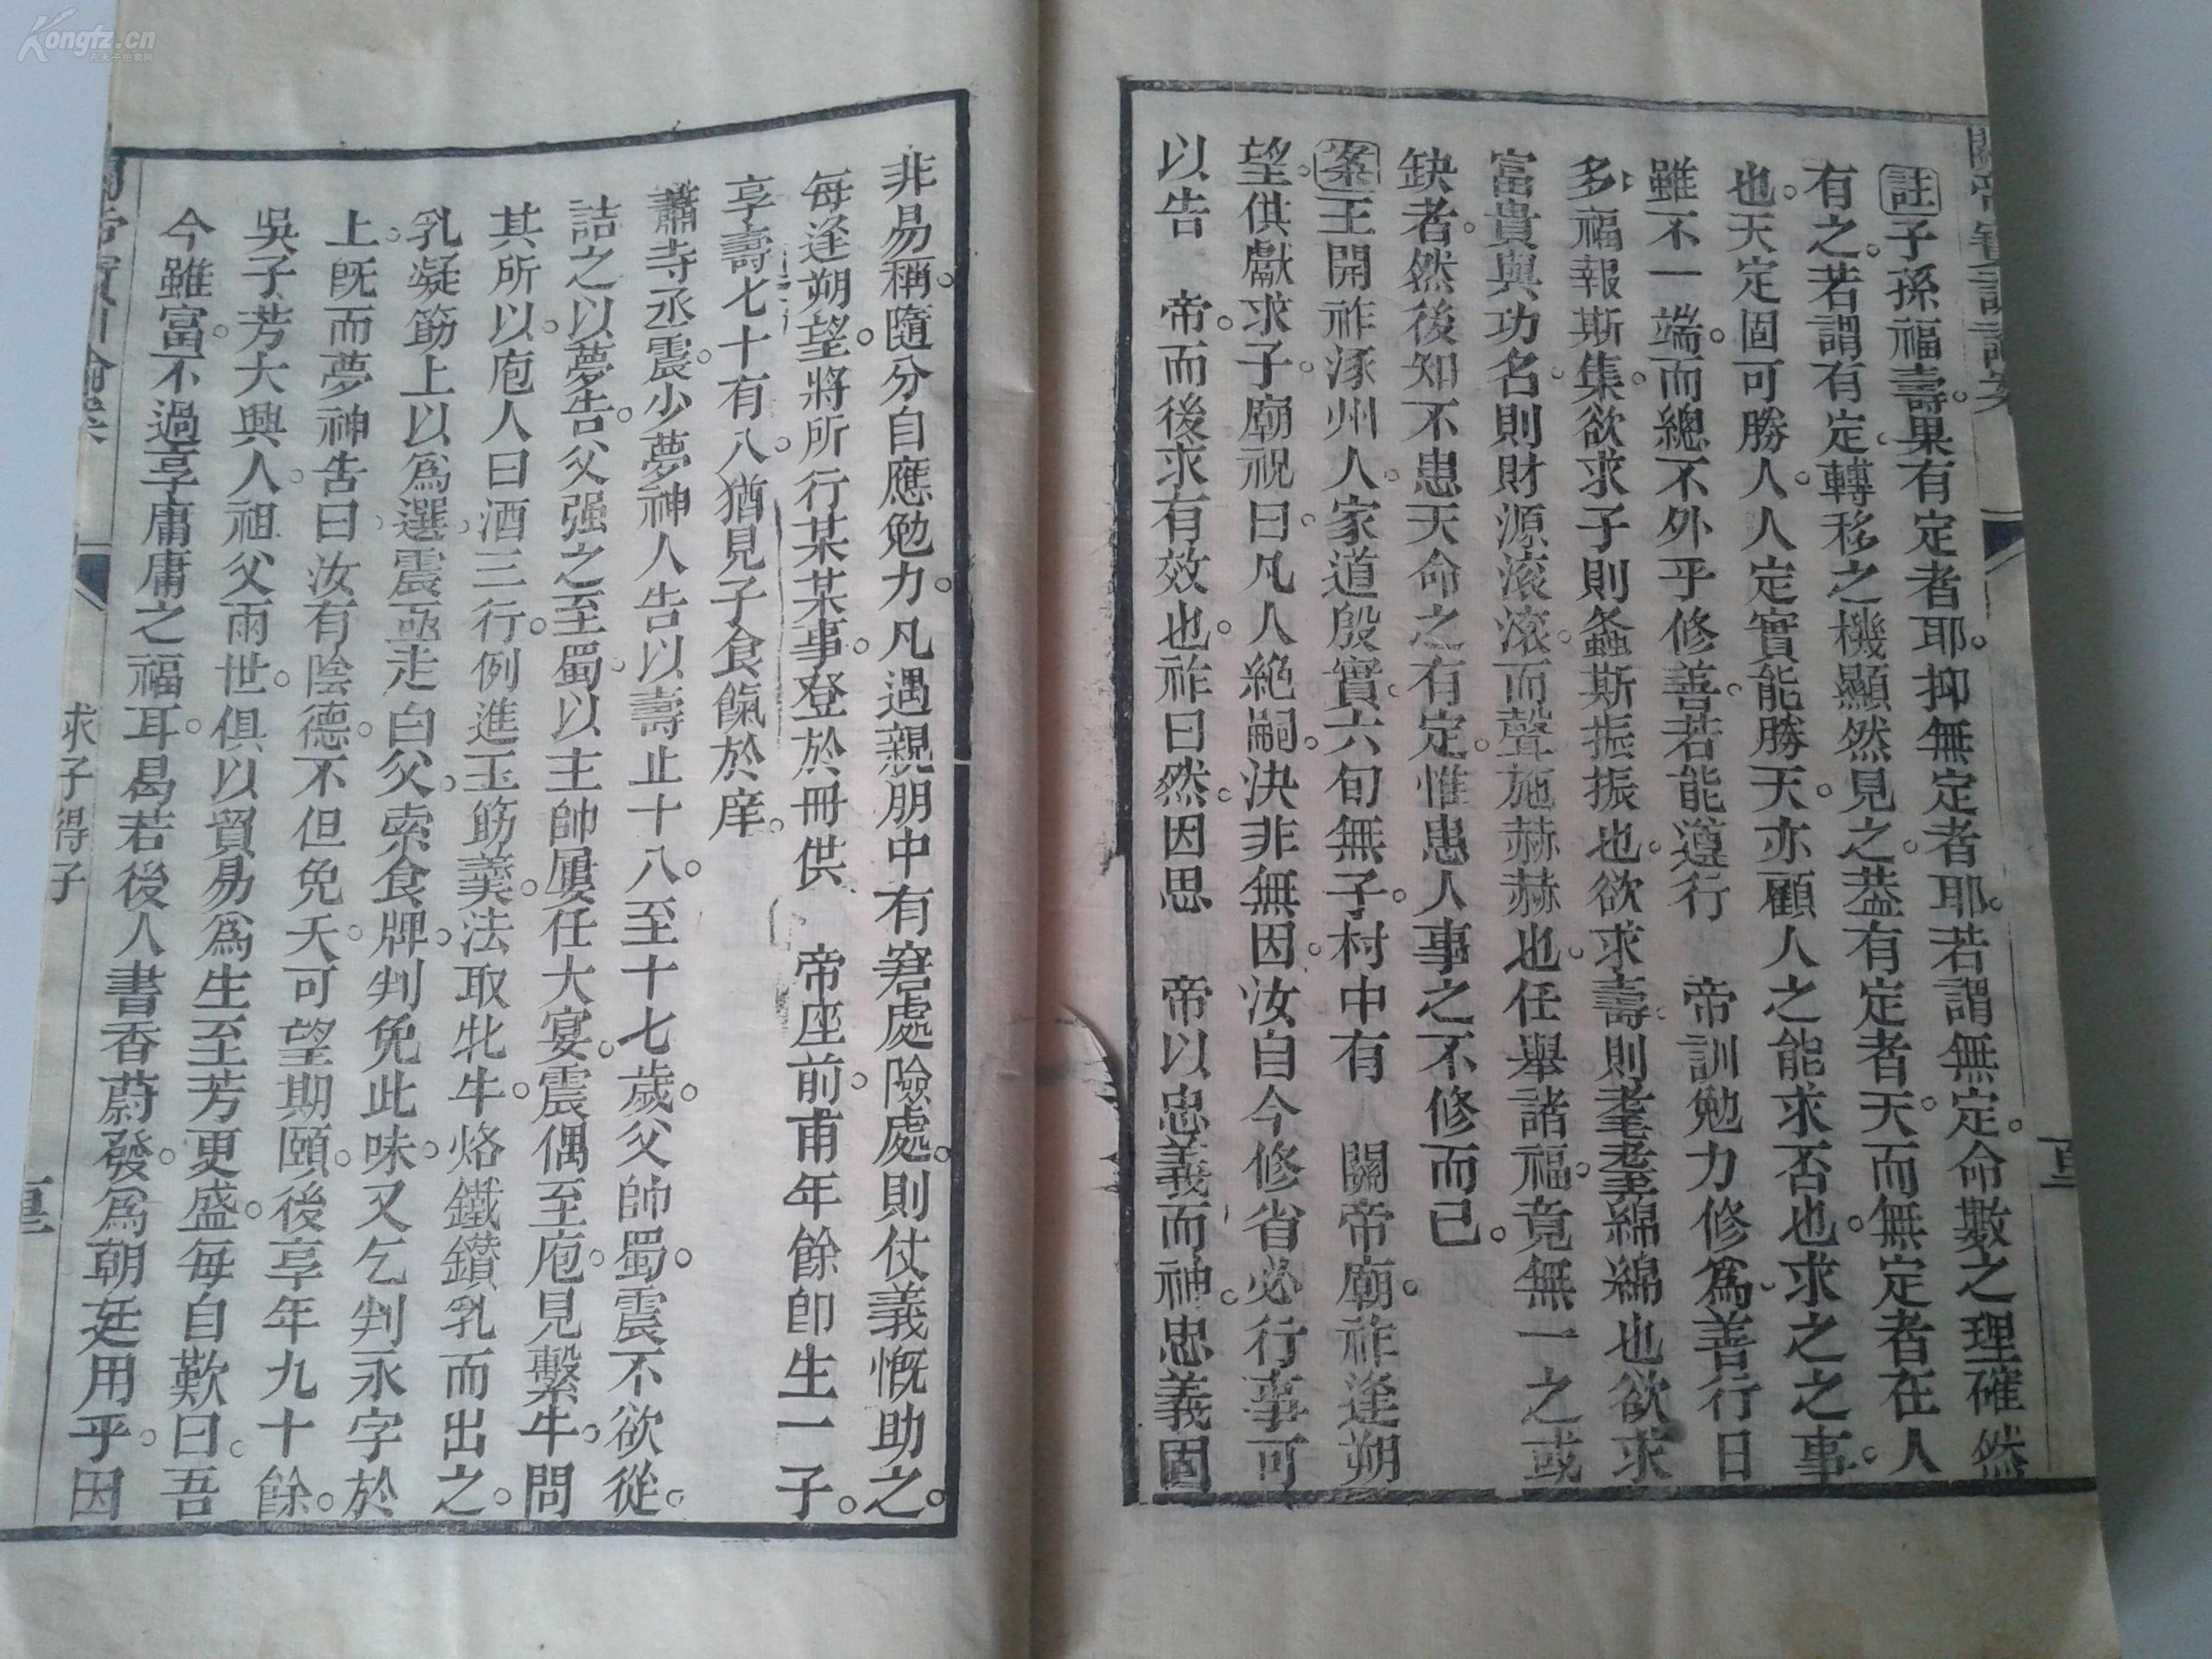 註子孫福壽。果有定者耶。抑無定者耶。若謂無定。命數之理確然
有之。若謂有定。轉移之機顯然見之。葢有定者天。而無定者在人
也。天定固可勝人。人定實能勝天。亦顧人之能求否也。求之之事。
雖不一端。而總不外乎修善。若能遵行 帝訓勉力修爲。善行日
多。福報斯集。欲求子則螽斯振振也。欲求壽。則耄耋綿綿也欲求
富貴與功名。則財源滚滚。而聲施赫赫也。任舉諸福。竟無一之或
缺者。然後知不患天命之有定。惟患人事之不修而已。
案王開祚涿州人。家道殷實。六旬無子。村中有 關帝廟。祚逢朔
望。供獻求子。廟祝曰。凡人絶嗣。決非無因。汝自今修省必行事可
以告 帝。而後求有效也。祚曰然。因思 帝以忠義而神。忠義固
非易稱。隨分自應勉力。凡遇親朋中有窘處險處。則仗義慨助之。
每逢朔望。將所行某某事。登於冊供 帝座前。甫年餘卽生一子。
享壽七十有八。猶見子食餼於庠。
蕭寺丞震。少夢神人告以壽止十八。至十七歲。父帥蜀。震不欲從。
詰之以夢告。父强之至蜀。以主帥屢任大宴。震偶至庖。見繫牛。問
其所以。庖人曰酒三行。例進玉筯羹。法取牝牛。烙鐵鑚乳而出之。
乳凝筯上以爲選。震亟走白父。索食牌。判免此味。又乞判永字於
上。旣而夢神告曰。汝有陰德。不但免夭。可望期頤。後享年九十餘。
吳子芳大興人。祖父兩世。俱以貿易爲生至芳更盛。每自歎曰。吾
今雖富。不過享庸庸之福耳。曷若後人書香蔚發。爲朝廷用乎。因
求子得子
Kongfz.cn